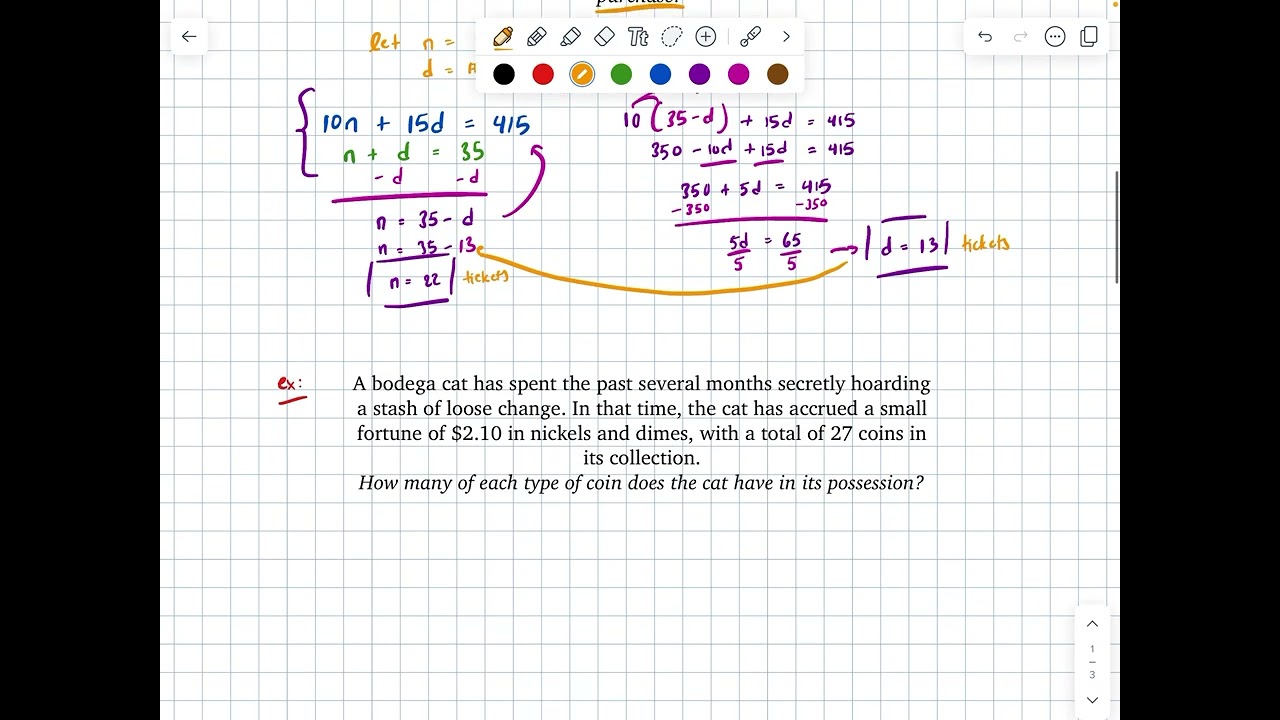 purchase.
Tt
let n =
d =
10n + 15d = 415
n + d = 35
- d -d
n = 35 - d
n = 35 - 13
n = 22 tickets
10 (35-d) + 15d = 415
350 - 10d + 15d = 415
350 + 5d = 415
-350 -350
5d = 65
5 5
d = 13 tickets
ex:
A bodega cat has spent the past several months secretly hoarding
a stash of loose change. In that time, the cat has accrued a small
fortune of $2.10 in nickels and dimes, with a total of 27 coins in
its collection.
How many of each type of coin does the cat have in its possession?
1
3